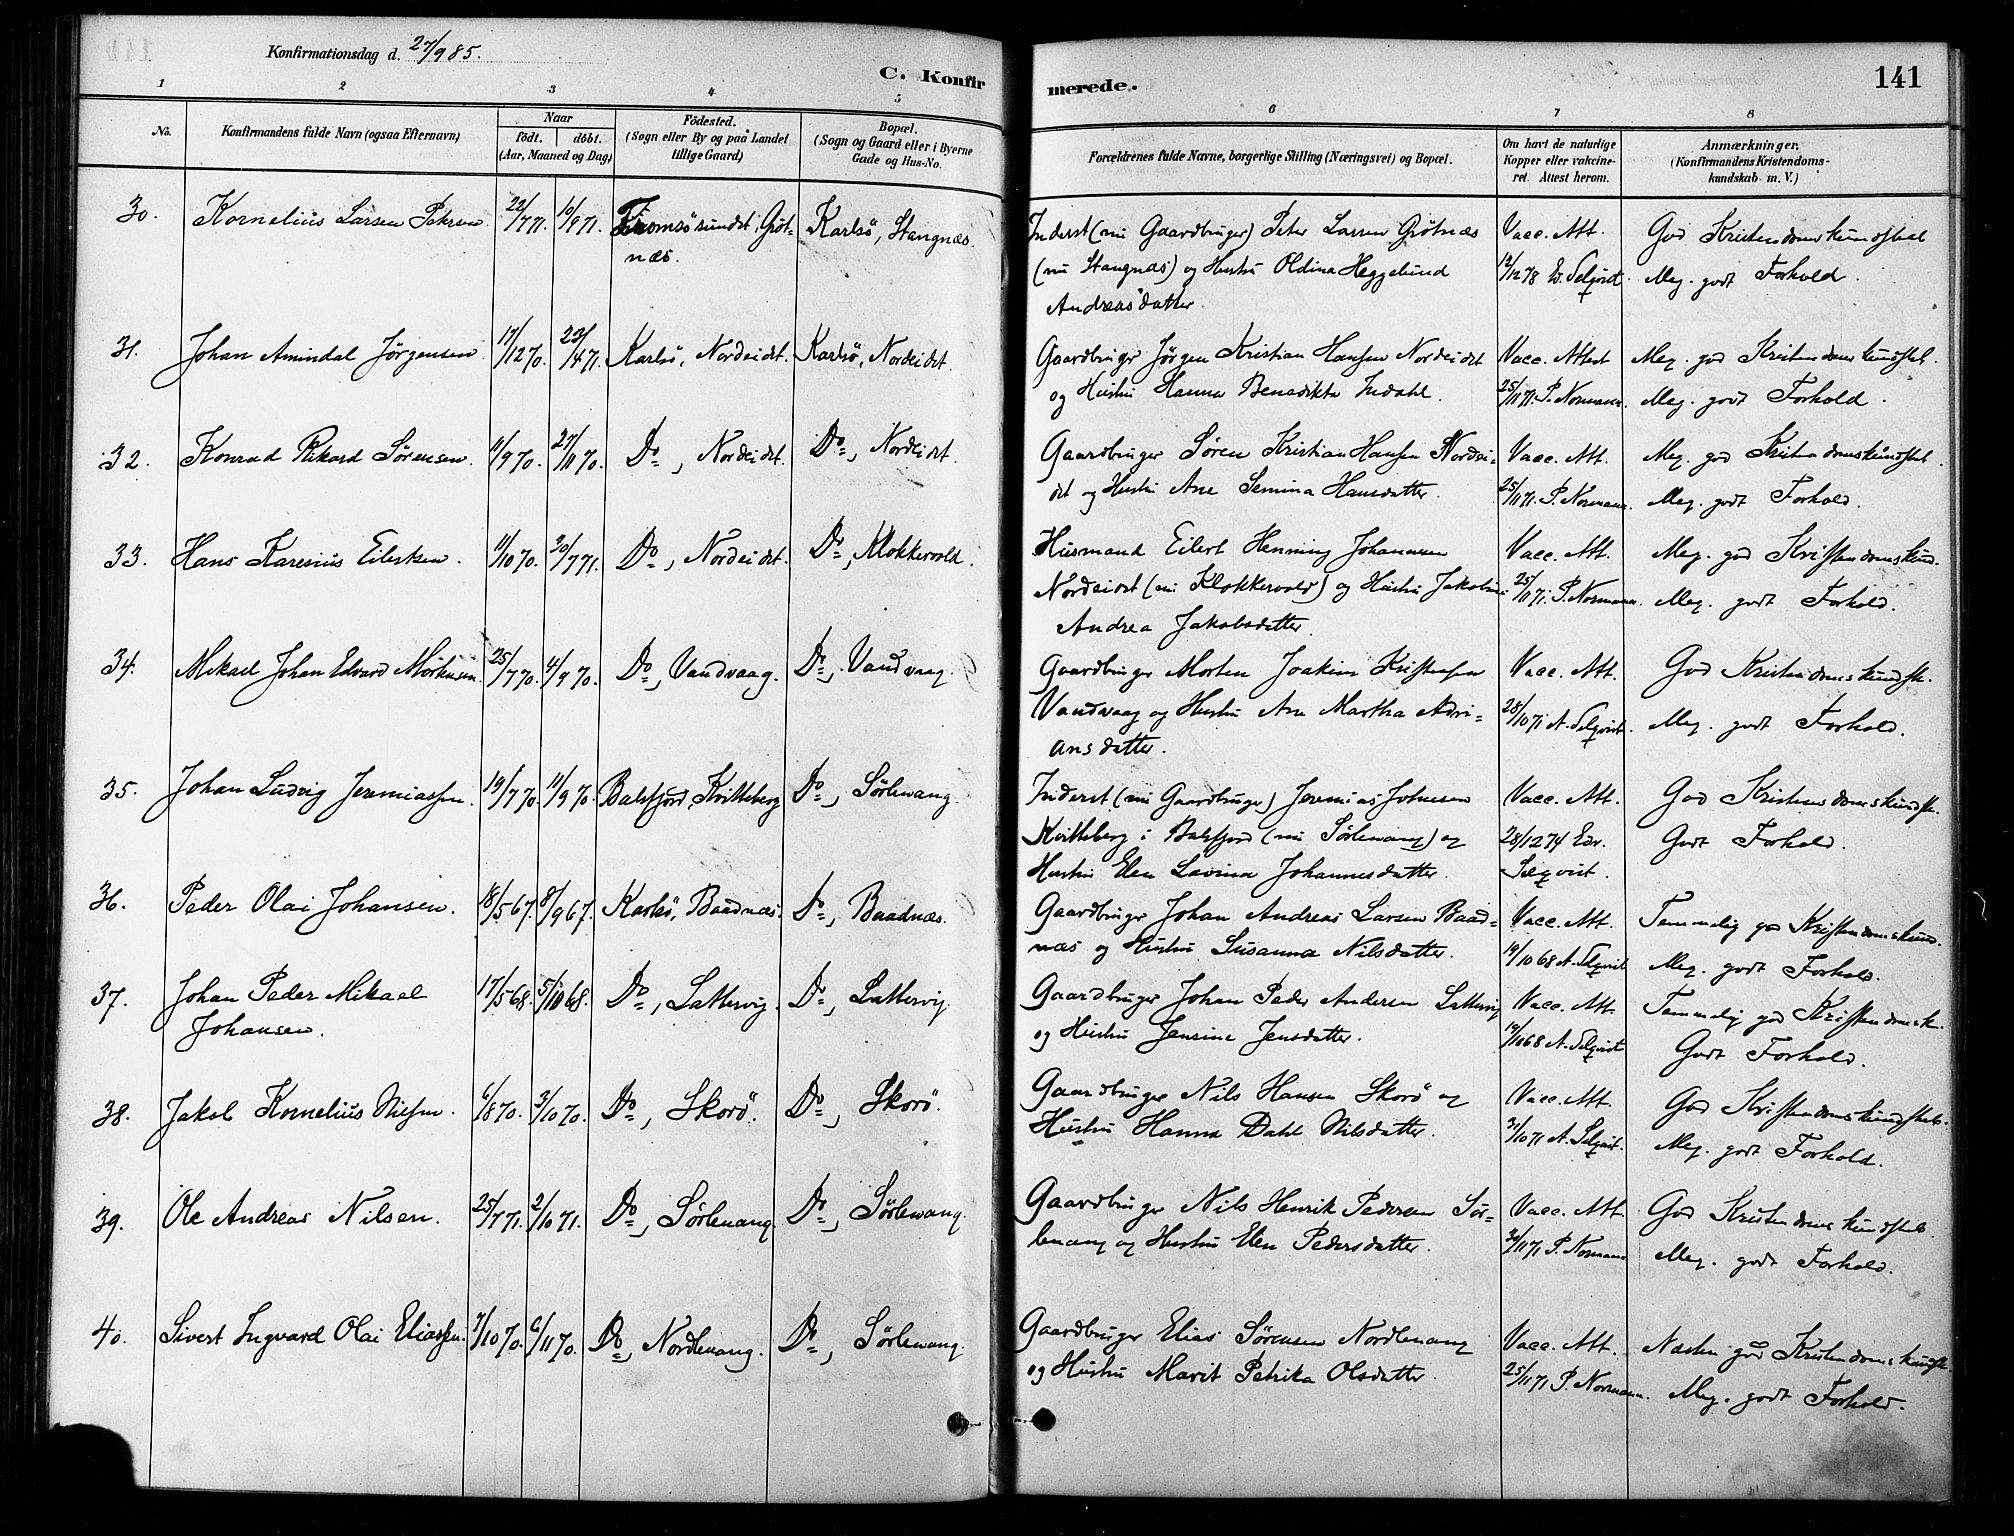 Konfirmationsdag d. 27/9 85.
C. Konfirmerede.
141
1 2 3 4 5 6 7 8
No.
Konfirmandens fulde Navn (ogsaa Efternavn)
Naar
født. døbt.
(Aar, Maaned og Dag)
Fødested.
(Sogn eller By og paa Landet
tillige Gaard)
Bopæl.
(Sogn og Gaard eller i Byerne
Gade og Hus-No.
Forældrenes fulde Navne, borgerlige Stilling (Næringsvei) og Bopæl.
Om havt de naturlige
Kopper eller vakcine-
ret. Attest herom.
Anmærkninger.
(Konfirmandens Kristendoms-
kundskab m. V.)
30. Kornelius Larsen Petersen 22/7 71. 10/9 71. Tromsøsundet, Grøt-
næs.
Karlsø, Stangnæs.
Inderst (nu Gaardbruger) Peter Larsen Grötnæs
(nu Stangnæs) og Hustru Oldina Heggelund
Andreasdatter.
Vacc. Att.
12/12 78 E. Selqvist.
God Kristendomskundskab
Meg. godt Forhold.
31. Johan Amindal Jörgensen 17/12 70. 23/4 71. Karlsö, Nordeidet. Karlsö, Nordeidet.
Gaardbruger Jörgen Kristian Hansen Nordeidet
og Hustru Hanna Benedikta Indahl.
Vacc. Attest
25/11 71. P. Normann.
Meg. god Kristendomskundskab.
Meg. godt Forhold.
32. Konrad Rikard Sörensen. 11/9 70. 27/11 70. Do, Nordeidet. Do, Nordeidet.
Gaardbruger Sören Kristian Hansen Nordei-
det og Hustru Ane Semina Hansdatter.
Vacc. Att.
25/11 71. P. Normann.
Meg. god Kristendomskundskab.
Meg. godt Forhold.
33. Hans Karenius Eilertsen. 11/10 70. 30/7 71. Do, Nordeidet. Do, Klokkervold.
Husmand Eilert Henning Johannesen
Nordeidet (nu Klokkervold) og Hustru Jakobine
Andrea Jakobsdatter.
Vacc. Att.
25/11 71. P. Normann.
Meg. god Kristendomskund.
Meg. godt Forhold.
34. Mikael Johan Edvard Mortensen 25/7 70. 4/9 70. Do, Vandvaag. Do, Vandvaag.
Gaardbruger Morten Joakim Kristensen
Vandvaag og Hustru Ane Martha Adri-
ansdatter.
Vacc. Att.
28/10 71 A. Selqvist.
God Kristendomskundsk.
Meg. godt Forhold.
35. Johan Ludvig Jeremiassen. 19/7 70. 11/9 70. Balsfjord, Kvitteberg Do, Sörlenang.
Inderst (nu Gaardbruger) Jeremias Johnesen
Kvitteberg i Balsfjord (nu Sörlenang) og
Hustru Elen Lavina Johannesdatter.
Vacc. Att.
28/12 74 Edv.
Selqvist.
God Kristendomskundsk.
Godt Forhold.
36. Peder Olai Johansen. 18/5 67. 8/9 67. Karlsö, Baadnæs. Do, Baadnæs.
Gaardbruger Johan Andreas Larsen Baad-
næs og Hustru Susanna Nilsdatter.
Vacc. Att.
19/10 68 A. Selqvist
Temmelig god Kristendomskund.
Meg. godt Forhold.
37. Johan Peder Mikael
Johansen.
17/5 68. 5/10 68. Do, Lattervig. Do, Lattervig.
Gaardbruger Johan Peder Andersen Lattervig
og Hustru Jensine Jensdatter.
Vacc. Att.
19/10 68 A. Selqvist
Temmelig god Kristendomsk.
Godt Forhold.
38. Jakob Kornelius Nilsen. 6/8 70. 3/10 70. Do, Skorö. Do, Skorö.
Gaardbruger Nils Hansen Skorö og
Hustru Hanna Dahl Nilsdatter.
Vacc. Att.
31/10 71 A. Selqvist.
God Kristendomskundskab.
Meg. godt Forhold.
39. Ole Andreas Nilsen. 25/7 71. 2/10 71. Do, Sörlenang. Do, Sörlenang.
Gaardbruger Nils Henrik Pedersen Sör-
lenang og Hustru Elen Pedersdatter.
Vacc. Att.
30/11 71 P. Normann
God Kristendomskundskab.
Meg. godt Forhold.
40. Sivert Ingvard Olai Eliassen. 7/10 70. 6/11 70. Do, Nordlenang. Do, Sörlenang.
Gaardbruger Elias Sörensen Nordlenang
og Hustru Marit Petrika Olsdatter.
Vacc. Att.
25/11 71 P. Normann.
Næsten god Kristendomskundsk.
Meg. godt Forhold.